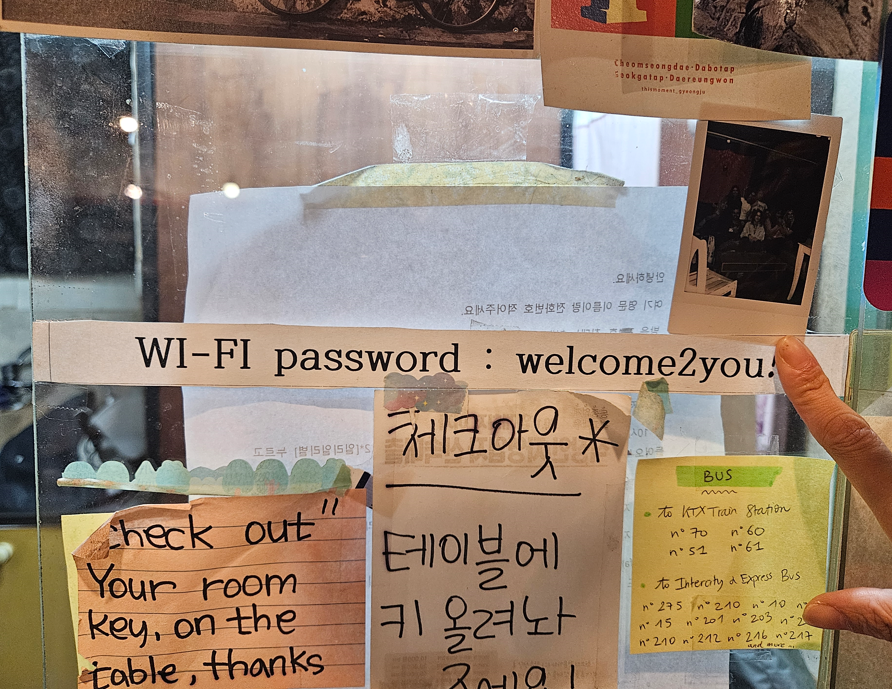 Cheomseongdae·Dabotap
Seokgatap·Daereungwon
thismoment_gyeongju
안녕하세요.
여기 영문 이름이랑 전화번호 적어주세요
WI-FI password : welcome2you!
*2*[일리일리별] 누르고
check out"
Your room
key, on the
table, thanks
체크아웃*
테이블에
키 올려놔
주세요!
BUS
to KTX Train Station
n° 70 n° 60
n° 51 n° 61
to Intercity & Express Bus
n° 275 n° 210 n° 10
n° 15 n° 201 n° 203
n° 210 n° 212 n° 216 n° 217
and more...